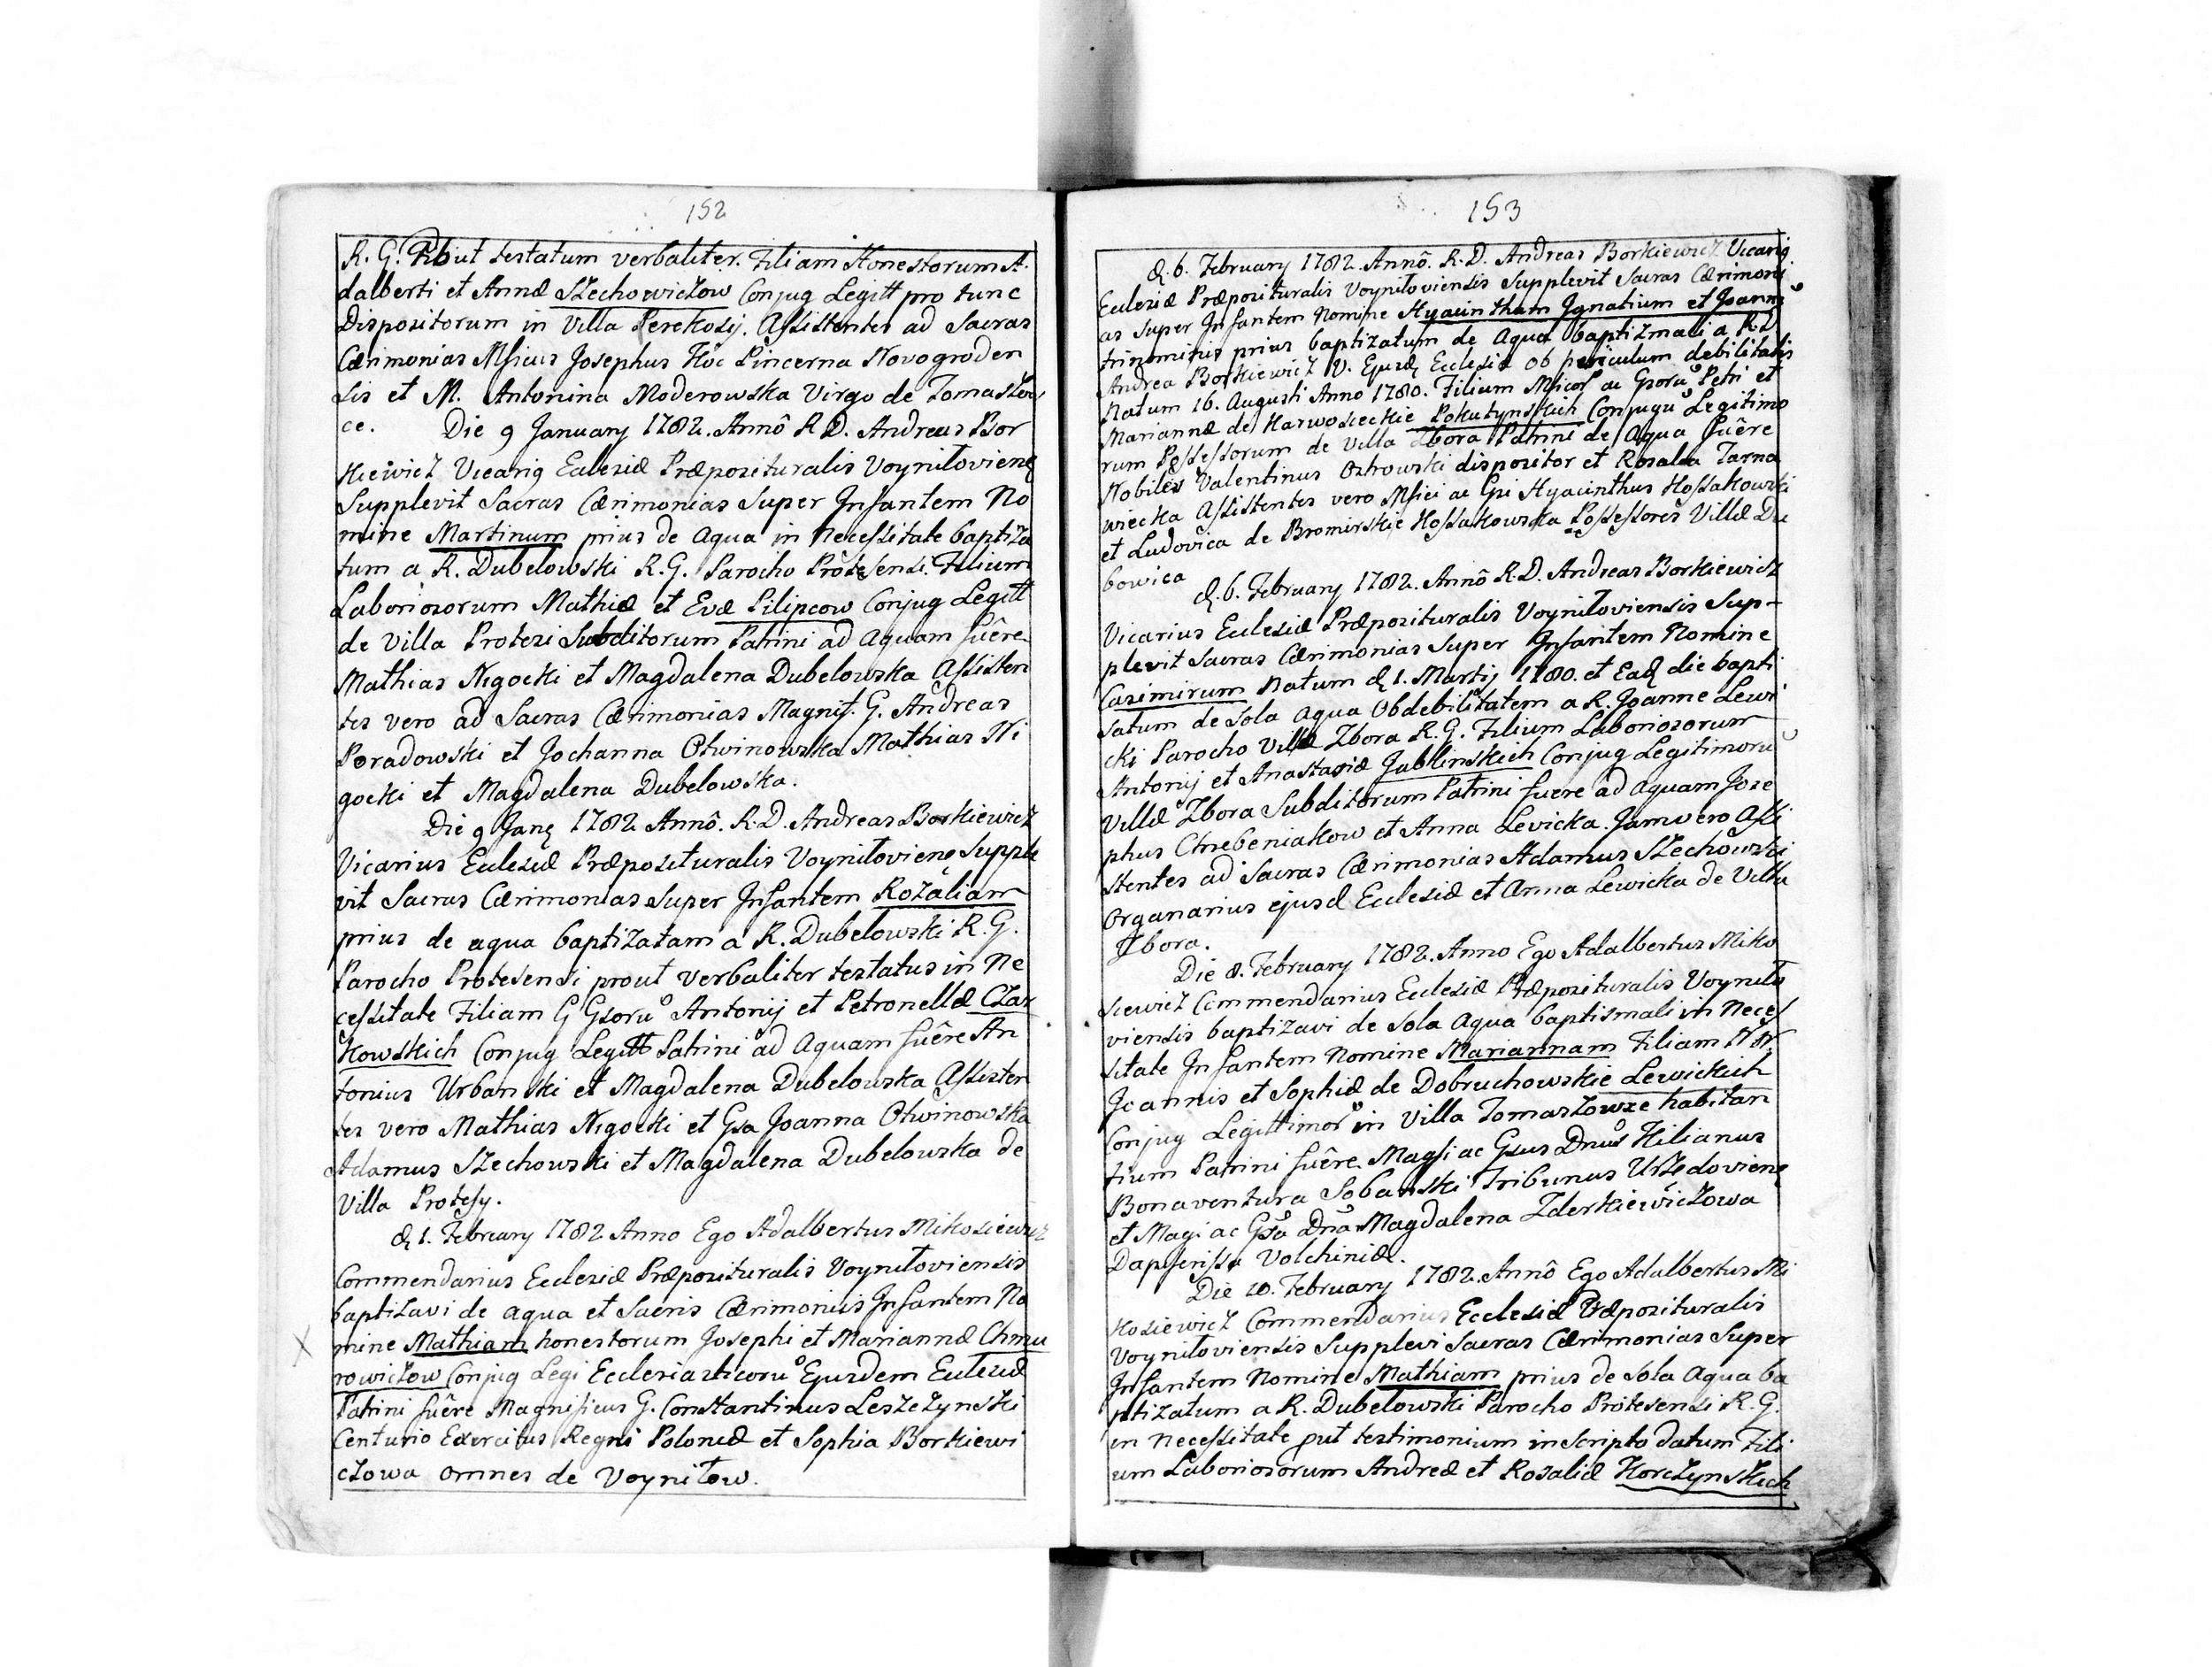 152
R. G. Prout testatum verbaliter. Filiam Honestorum A.
dalberti et Annæ Szechowiczow Conjug Legitt pro tunc
Dispositorum in Villa Perekosÿ. Assistentes ad Sacras
Cærimonias Msicus Josephus Hoc Pincerna Novogroden
sis et M. Antonina Moderowska Virgo de Tomaszow
ce. Die 9 January 1782. Annô R D. Andreas Bor
kiewicz Vicarig Eclesiæ Præposituralis Voyniloviens
Supplevit Sacras Cærimonias Super Infantem No
mine Martinum prius de Aqua in Necessitate baptiza
tum a R. Dubelowski R. G. Parocho Protesensi. Filium
Laboriosorum Mathiæ et Evæ Pilipcow Conjug Legitt
de Villa Protesi Subditorum Patrini ad Aquam fuêre
Mathias Nigocki et Magdalena Dubelowska Assisten
tes vero ad Sacras Cærimonias Magnif. G. Andreas
Poradowski et Jochanna Otwinowska Mathias Ni
gocki et Magdalena Dubelowska.
Die 9 Janȩ 1782 Annô. R. D. Andreas Borkiewicz
Vicarius Eclesiæ Præposituralis Voyniloviens Supple
vit Sacras Cærimonias Super Infantem Rozaliam
prius de aqua baptizatam a R. Dubelowski R. G.
Parocho Protesensi prout verbaliter testatus in Ne
cessitate Filiam G Gsoru Antonij et Petronellæ Czar
kowskich Conjug Legitt Patrini ad Aquam fuêre An
tonius Urbanski et Magdalena Dubelowska Assisten
tes vero Mathias Nigocki et Gsa Joanna Otwinowska
Adamus Szechowski et Magdalena Dubelowska de
Villa Protesy.
d. 1. February 1782 Anno Ego Adalbertus Mikosiewicz
Commendarius Eclesiæ Præposituralis Voyniloviensis
baptizavi de aqua et Sacris Cærimoniis Infantem No
mine Mathiam honestorum Josephi et Mariannæ Chmu
rowiczow Conjug Legi Ecclesiasticoru Ejusdem Eclesiæ
Patrini fuêre Magnificus G. Constantinus Leszczynski
Centurio Exercitus Regni Poloniæ et Sophia Borkiewi
czowa omnes de Voynilow.
153
d. 6. February 1782. Annô. R. D. Andreas Borkiewicz Vicarig
Eclesiæ Præposituralis Voyniloviensis Supplevit Sacras Cærimoni
as Super Infantem Nomine Hyacintham Ignatium et Joanne
trinominis prius baptizatum de Aqua baptizmali a R. D.
Andrea Borkiewicz V. Ejusd Ecclesiæ ob periculum debilitatis
Natum 16. Augusti Anno 1780. Filium Msicor ac Gsoru Petri et
Mariannæ de Karwosieckie Pokutynskich Conjugu Legitimo
rum Possessorum de Villa Zbora Patrini de Aqua fuêre
Nobiles Valentinus Ostrowski dispositor et Rosalia Tarna
wiecka Assistentes vero Msici ac Gsi Hyacinthus Hossakowski
et Ludovica de Bromirskie Hossakowska Possessores Villæ Du
bowica
d. 6. February 1782. Annô R. D. Andreas Borkiewicz
Vicarius Eclesiæ Præposituralis Voyniloviensis Sup-
plevit Sacras Cærimonias Super Infantem Nomine
Casimirum Natum d 1. Martij 1780. et Ead die bapti
satum de Sola Aqua Obdebilitatem a R. Joanne Lewi
cki Parocho Villæ Zbora R. G. Filium Laboriosorum
Antonij et Anastasiæ Jablinskich Conjug Legitimoru
Villæ Zbora Subditorum Patrini fuere ad Aquam Jose
phus Chrebeniakow et Anna Levicka. Jam vero Assi
stentes ad Sacras Cærimonias Adamus Szechowski
Organarius ejusd Ecclesiæ et Anna Lewicka de Villa
Zbora.
Die 8. February 1782. Anno Ego Adalbertus Miko
siewicz Commendarius Eclesiæ Præposituralis Voynilo
viensis baptizavi de Sola Aqua baptismali in Neces
sitate Infantem Nomine Mariannam Filiam N N.
Joannis et Sophiæ de Dobruchowskie Lewickich
Conjug Legittimor in Villa Tomaszowze habitan
tium Patrini fuêre Magsi ac Gsus Dnus Kilianus
Bonaventura Sobanski Tribunus Urzedoviens
et Magi ac Gsa Dna Magdalena Zderkiewiczowa
Dapiferissa Volchiniæ.
Die 10. February 1782. Annô Ego Adalbertus Mi
kosiewicz Commendarius Ecclesiæ Præposituralis
Voyniloviensis Supplevi Sacras Cærimonias Super
Infantem Nomine Mathiam prius de Sola Aqua ba
ptizatum a R. Dubelowski Parocho Protesensi R. G.
in Necessitate put testimonium in Scripto datum Fili
um Laboriosorum Andreæ et Rosaliæ Horczynskich